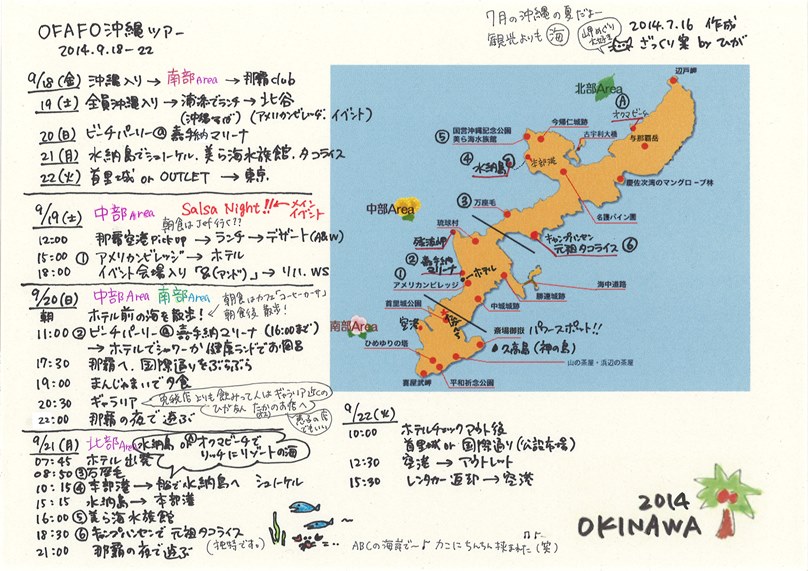 OFAFO沖縄ツアー
2014.9.18-22
7月の沖縄の夏だよー
観光よりも 海
岬めぐり
大好き
2014.7.16 作成
ざっくり案 by ひが
9/18(金) 沖縄入り→南部Area→那覇club
19(土) 全員沖縄入り→浦添でランチ→北谷
(沖縄そば) (アメリカンビレッジ イベント)
20(日) ビーチパーリー@嘉手納マリーナ
21(月) 水納島でシュノーケル、美ら海水族館、タコライス
22(火) 首里城 or OUTLET → 東京
9/19(土) 中部Area Salsa Night!! ←メイン
イベント
12:00 那覇空港 Pick up→ランチ→デザート(A&W)
15:00 ① アメリカンビレッジ→ホテル
18:00 イベント会場入り「&(アンド)」→リハ、WS
9/20(日) 中部Area 南部Area
朝食後 散歩!
朝 ホテル前の海を散歩!
11:00 ②ビーチパーリー@嘉手納マリーナ (16:00まで)
→ホテルでシャワーか健康ランドでお風呂
17:30 那覇へ、国際通りをぶらぶら
19:00 まんじゅまいで夕食
20:30 ギャラリア
22:00 那覇の夜で遊ぶ
9/21(月) 北部Area 水納島 or Ⓐオクマビーチで
リッチにリゾートの海
07:45 ホテル出発
08:50 ③万座毛
10:15 ④本部港→船で水納島へ シュノーケル
15:15 水納島→本部港
16:00 ⑤美ら海水族館
18:30 ⑥キャンプハンセンで元祖タコライス
21:00 那覇の夜で遊ぶ (独特です。)
北部Area
辺戸岬
Ⓐ
オクマビーチ
与那覇岳
今帰仁城跡
⑤ 国営沖縄記念公園
美ら海水族館
古宇利大橋
④ 水納島
本部港
慶佐次湾のマングローブ林
③ 万座毛
名護パイン園
中部Area
琉球村
残波岬
キャンプハンセン
元祖タコライス ⑥
② 嘉手納
マリーナ
ホテル
① アメリカンビレッジ
海中道路
勝連城跡
首里城公園
中城城跡
空港
南部Area
斎場御嶽 パワースポット!!
久高島(神の島)
ひめゆりの塔
山の茶屋・浜辺の茶屋
喜屋武岬
平和祈念公園
9/22(火)
10:00 ホテルチェックアウト後
首里城 or 国際通り(公設市場)
12:30 空港→アウトレット
15:30 レンタカー返却→空港
2014
OKINAWA